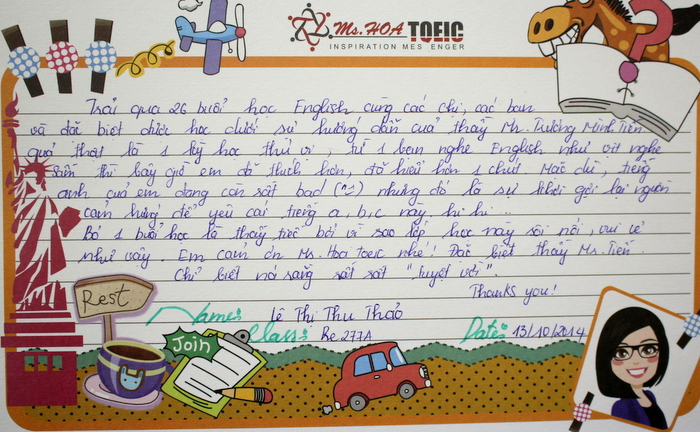 Ms.HOA TOEIC
INSPIRATION MES ENGER
Trải qua 26 buổi học English cùng các chị, các bạn
và đặc biệt được học dưới sự hướng dẫn của thầy Mr. Trương Minh Tiến
quả thật là 1 kỳ học thú vị, từ 1 bạn nghe English như vịt nghe
sấm thì bây giờ em đã thích hơn, đã hiểu hơn 1 chút. Mặc dù, tiếng
anh của em đang còn rất bad (~) nhưng đó là sự khơi gợi lại nguồn
cảm hứng để yêu cái tiếng a,b,c này. hi hi...
Bỏ 1 buổi học là thấy tiếc bởi vì sao lớp học này sôi nổi, vui vẻ
như vậy. Em cảm ơn Ms. Hoa toeic nhé! Đặc biệt thầy Mr. Tiến.
Chỉ biết nó rằng rất rất "tuyệt vời".
Thanks you!
Name: Lê Thị Thu Thảo
Class: Be 277A
Date: 13/10/2014
Rest
Join